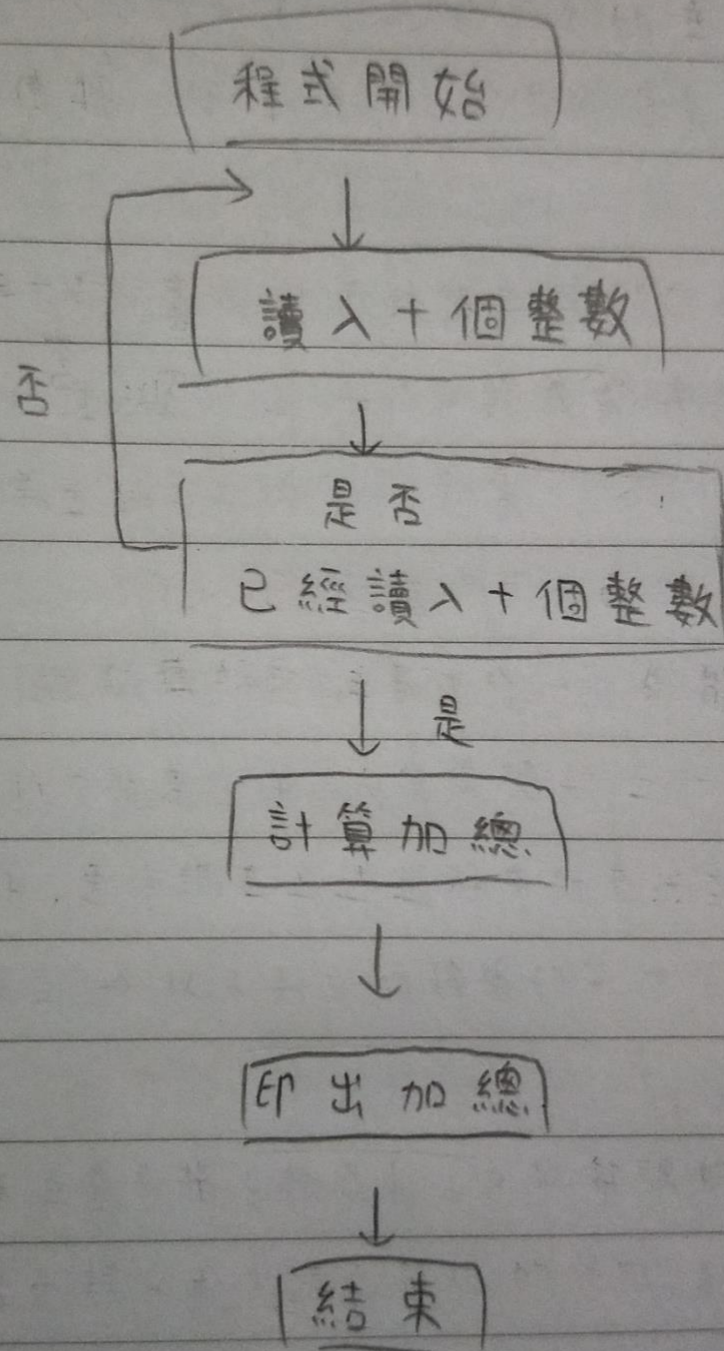 程式開始
讀入十個整數
否
是否
已經讀入十個整數
是
計算加總
印出加總
結束